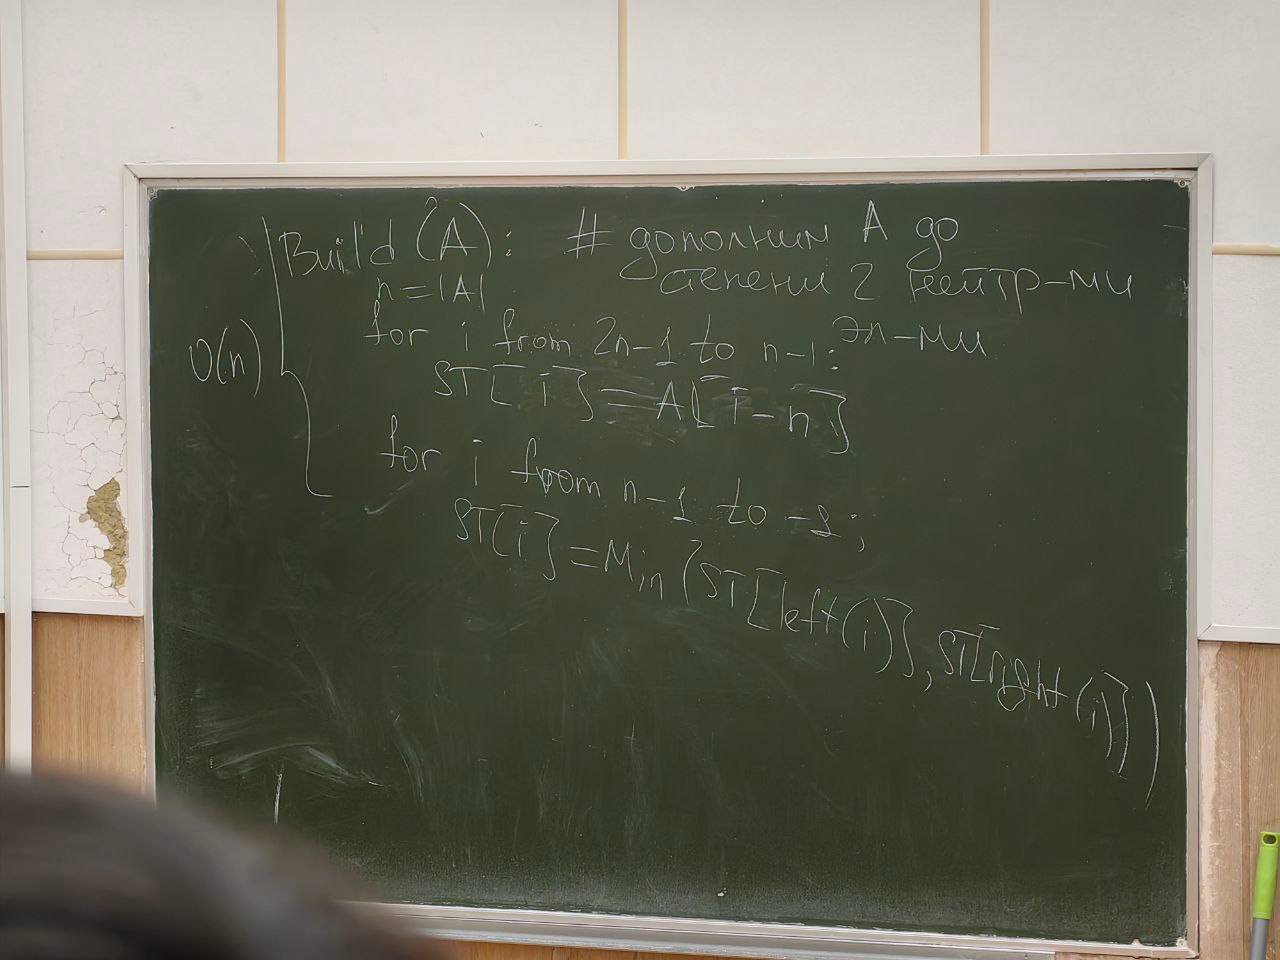 Build (A): # дополним A до
n=|A| степени 2 нейтр-ми
эл-ми
for i from 2n-1 to n-1:
O(n)
ST[i] = A[i-n]
for i from n-1 to -1;
ST[i] = Min (ST[left(i)], ST[right(i)])